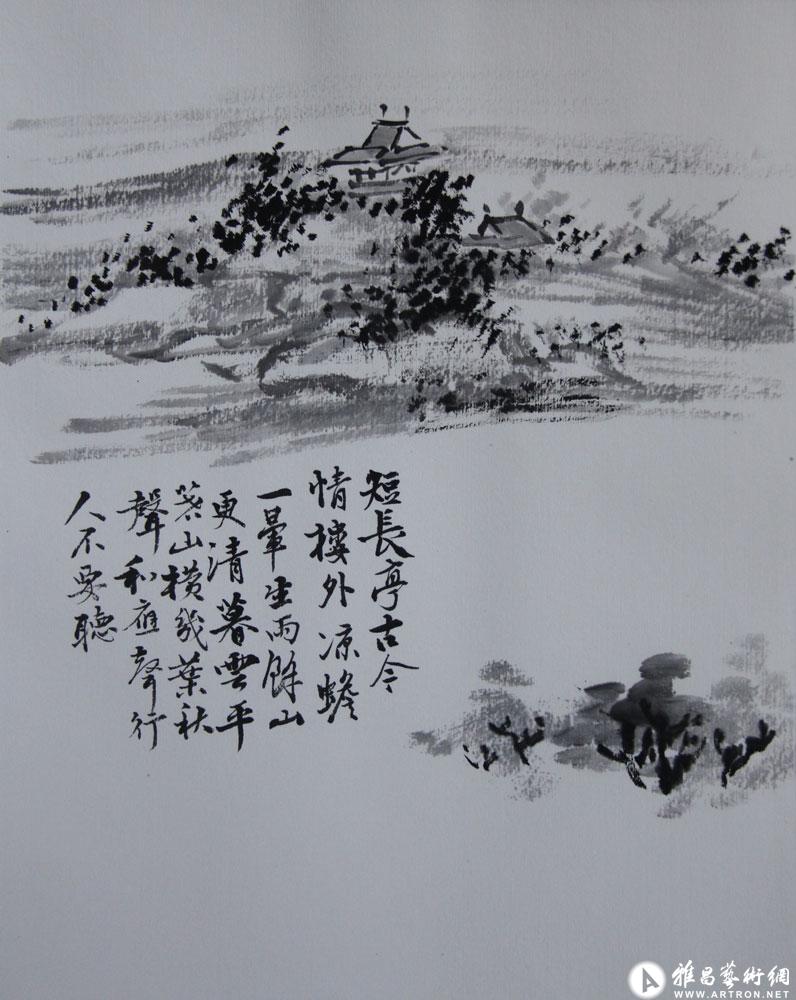 短長亭古今
情樓外凉蟾
一暈生雨餘山
更清暮雲平
暮山横幾葉秋
聲和雁聲行
人不要聽
雅昌藝術網
WWW.ARTRON.NET